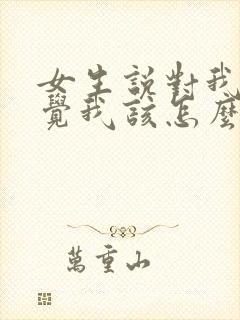 女生說對我
覺我該怎麼
萬重山